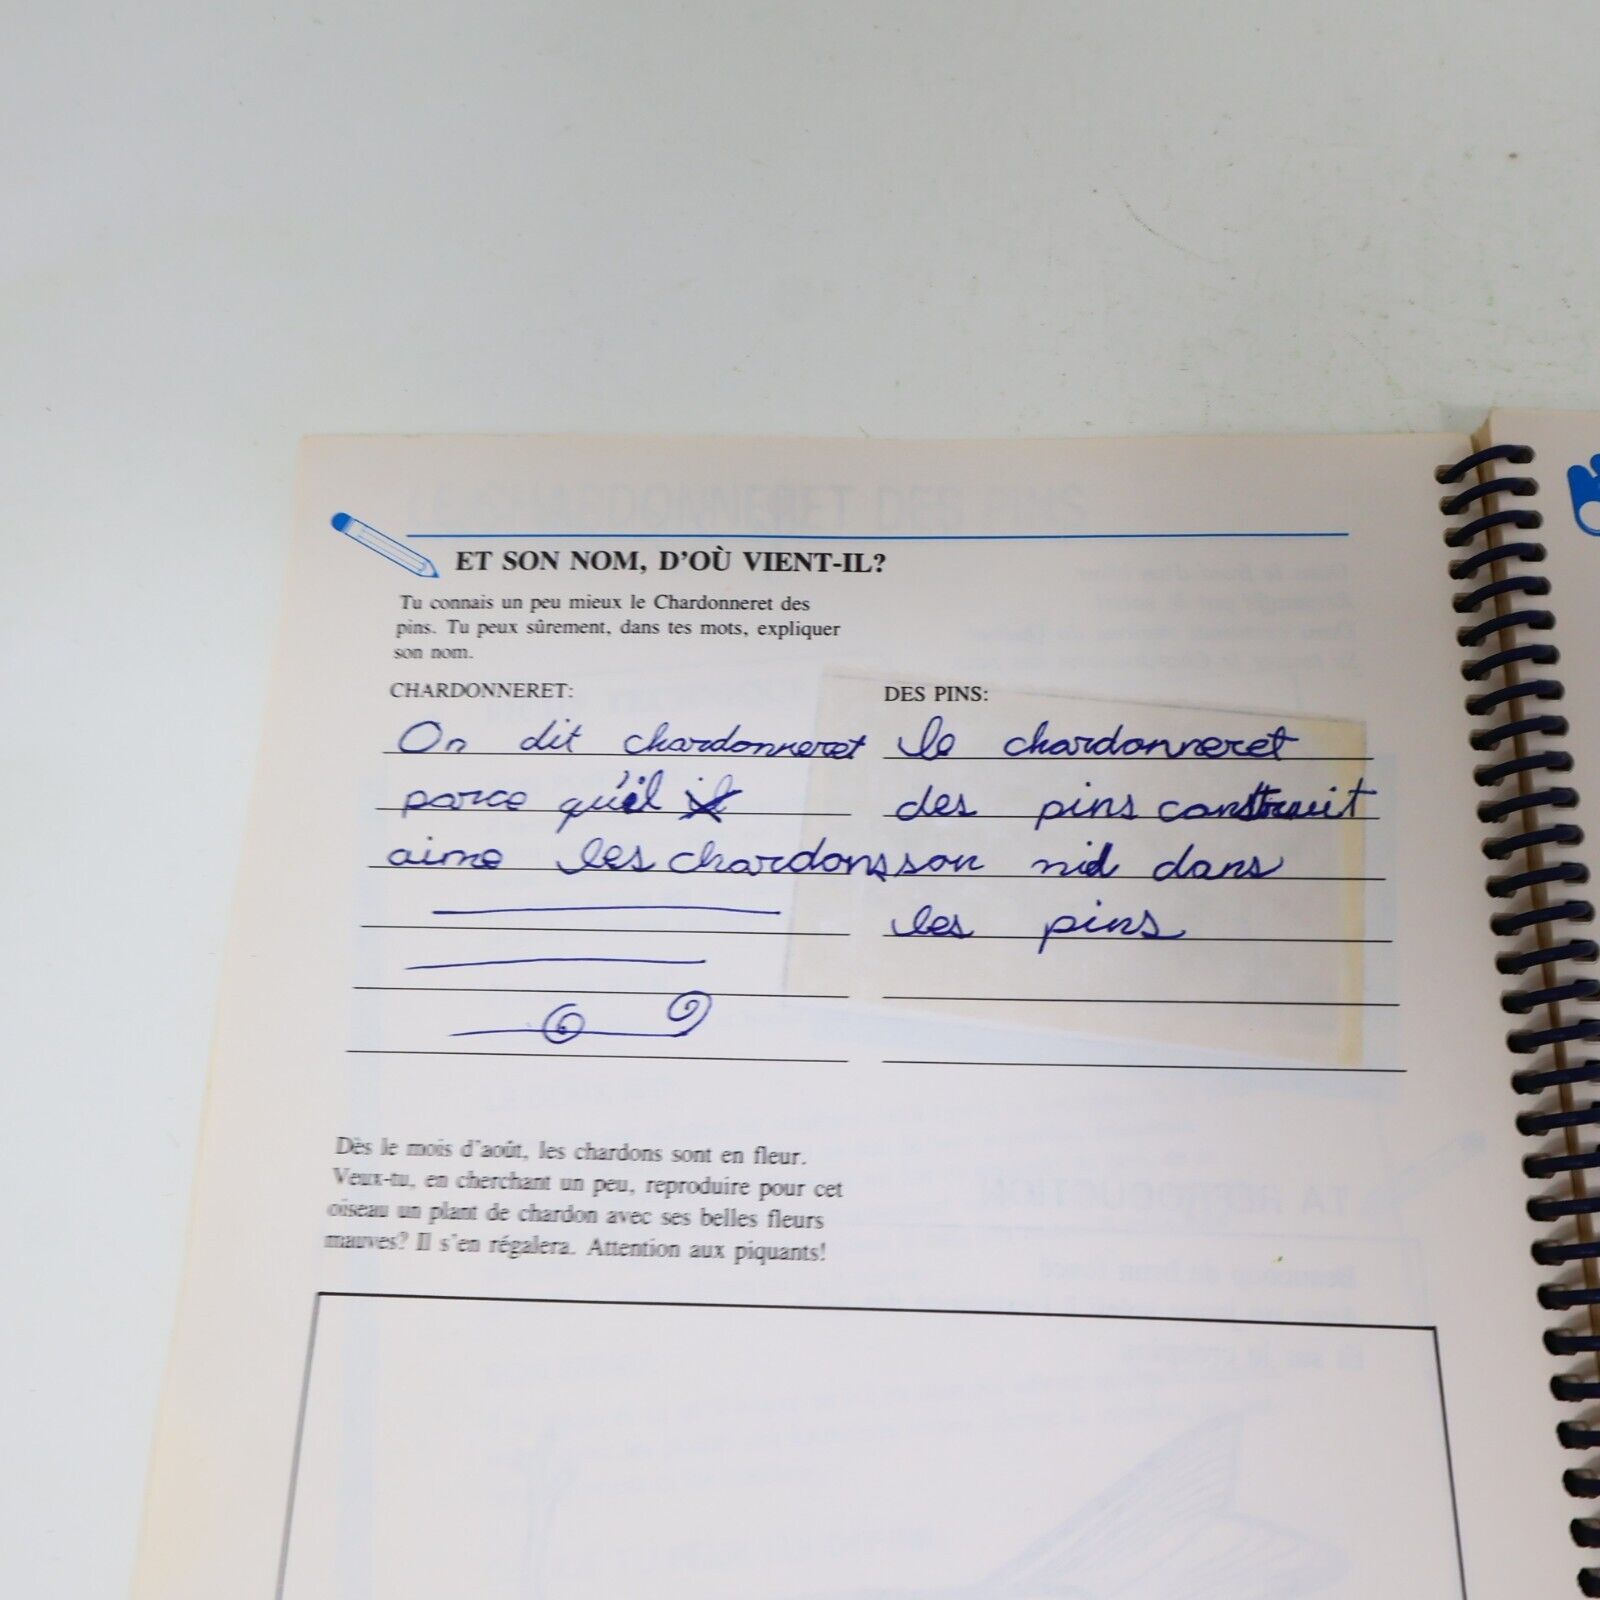 ET SON NOM, D'OÙ VIENT-IL?
Tu connais un peu mieux le Chardonneret des
pins. Tu peux sûrement, dans tes mots, expliquer
son nom.
CHARDONNERET:
On dit chardonneret
parce qu'il il
aime les chardons
DES PINS:
le chardonneret
des pins construit
son nid dans
les pins
Dès le mois d'août, les chardons sont en fleur.
Veux-tu, en cherchant un peu, reproduire pour cet
oiseau un plant de chardon avec ses belles fleurs
mauves? Il s'en régalera. Attention aux piquants!